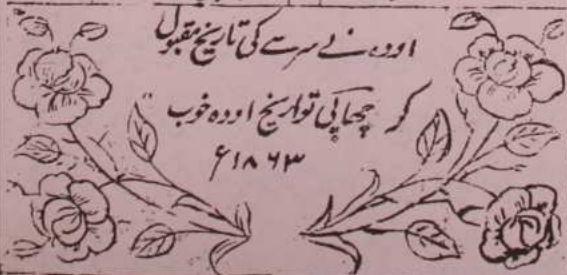 اودہ نے سرسے کی تاریخ مقبول
کر چھاپی تواریخ اودہ خوب
۱۸۶۳ء